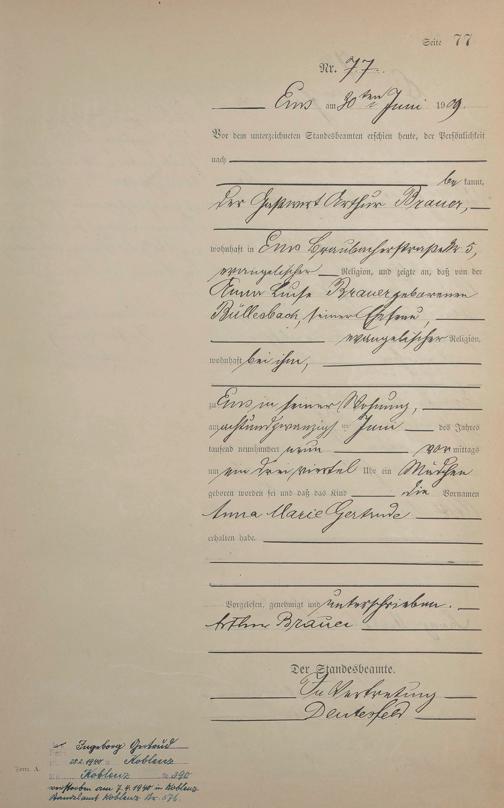 Seite 77
Nr. 77.
Ems am 30ten Juni 1909
Vor dem unterzeichneten Standesbeamten erschien heute, der Persönlichkeit
nach
be kannt,
der Gastwirt Arthur Brauer,
wohnhaft in Ems Braubacherstraße Nr 5,
evangelischer Religion, und zeigte an, daß von der
Anna Luise Brauer geborenen
Büllesbach, seiner Ehefrau,
evangelischer Religion,
wohnhaft bei ihm,
zu Ems in seiner Wohnung,
am achtundzwanzigsten Juni des Jahres
tausend neunhundert neun vor mittags
um ein drei viertel Uhr ein Mädchen
geboren worden sei und daß das Kind die Vornamen
Anna Marie Gertrude
erhalten habe.
Vorgelesen, genehmigt und unterschrieben.
Arthur Brauer
Der Standesbeamte.
In Vertretung
Ingeborg
1940 Koblenz
Koblenz 390
verstorben am 7.4.1940 in Koblenz
Standesamt Koblenz Nr. 576.
Form. A.